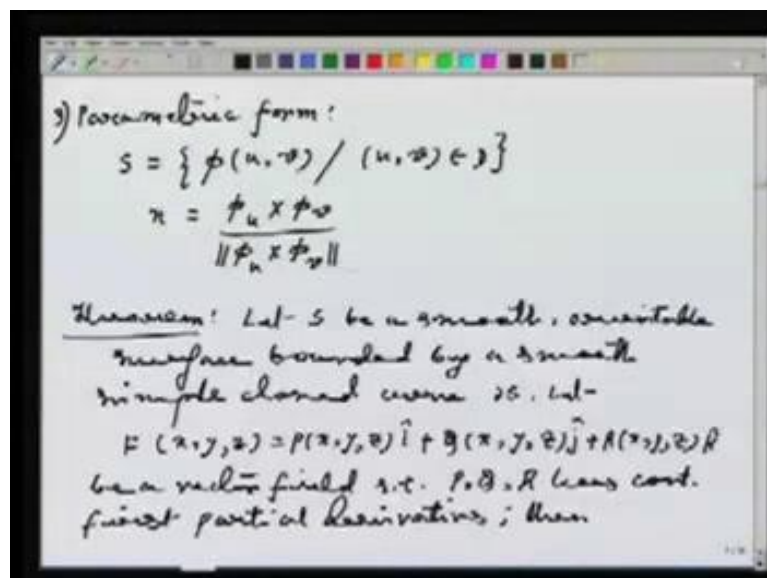 3) Parametric form:
S = { φ(u, v) / (u, v) ∈ D }
n = φ_u × φ_v
‖φ_u × φ_v‖
Theorem: Let S be a smooth, orientable
surface bounded by a smooth
simple closed curve ∂S. Let
F(x, y, z) = P(x, y, z) î + Q(x, y, z) ĵ + R(x, y, z) k̂
be a vector field s.t. P, Q, R have cont.
first partial derivatives; then